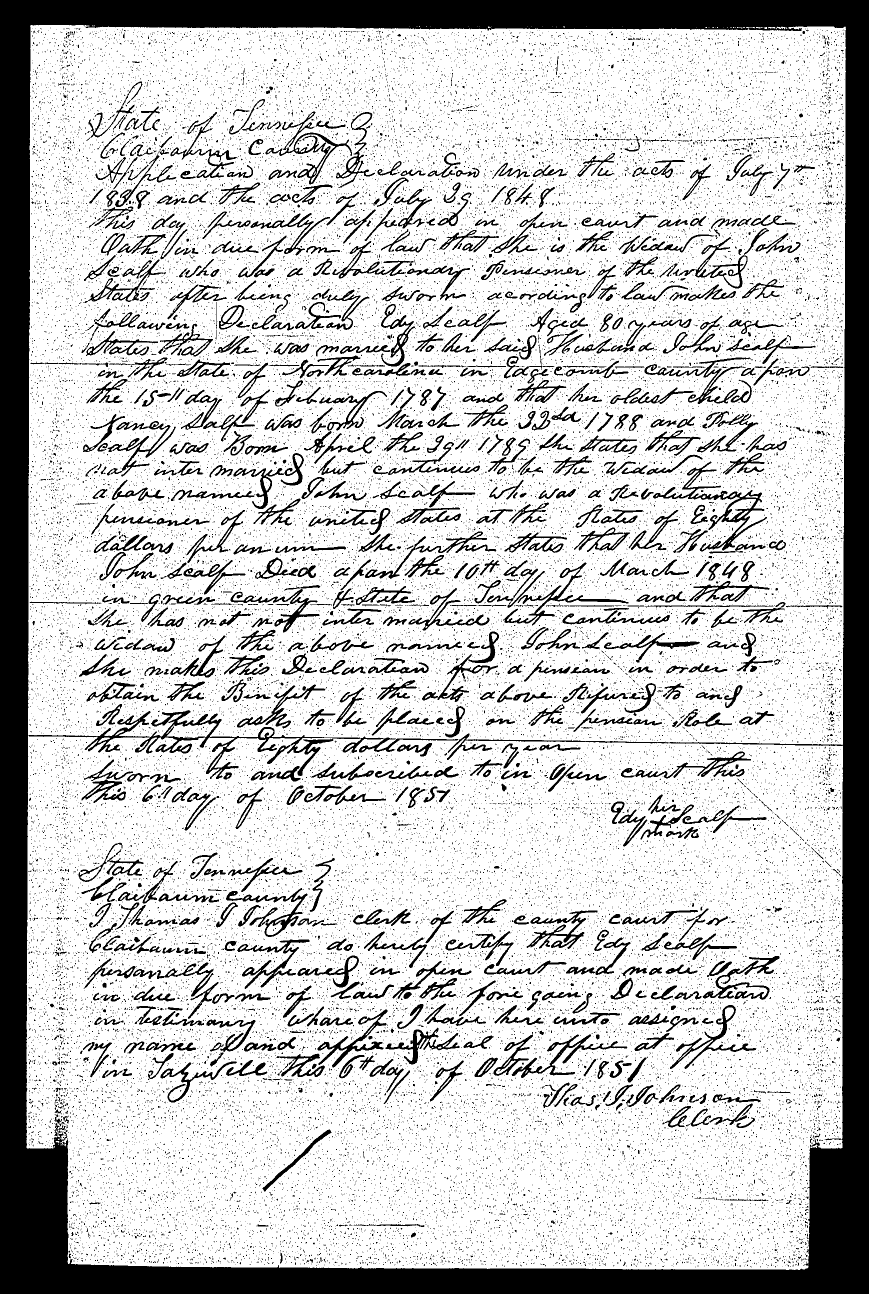 State of Tennessee }
Claibourn County }
Application and Declaration under the acts of July 7th
1838 and the acts of July 29 1848
this day personally appeared in open court and made
Oath in due form of law that She is the Widow of John
Scalf who was a Revolutionary Pensioner of the united
States after being duly sworn acording to law makes the
following Declaration Edy Scalf Aged 80 years of age
States that She was married to her said Husband John Scalf
in the State of North carolina in Edgecomb county apon
the 15th day of Febuary 1787 and that her oldest child
Nancy Salf was born March the 22nd 1788 and Polly
Scalf was Born April the 29th 1789 She States that She has
not inter married but continues to be the Widow of the
above named John Scalf who was a Revolutionary
pensioner of the united States at the Rates of Eighty
dollars per annum She further States that her Husband
John Scalf Died apon the 10th day of March 1848
in green county & State of Tennessee and that
She has not not inter married but continues to be the
Widow of the above named John Scalf and
She makes this Declaration for a pension in order to
obtain the Binifit of the acts above Refured to and
Respetfully asks to be placed on the pension Role at
the Rates of Eighty dollars per year
Sworn to and subscribed to in Open court this
this 6th day of October 1851
her
Edy + Scalf
mark
State of Tennessee }
Claibourn county }
I Thomas J Johnson clerk of the county court for
Claibourn county do hereby certify that Edy Scalf
personally appeared in open court and made Oath
in due form of law to the fore going Declaration
in testimony whareof I have here unto assigned
my name and affixed the Seal of office at office
in Tazewell this 6th day of October 1851
Thos. J. Johnson
Clerk